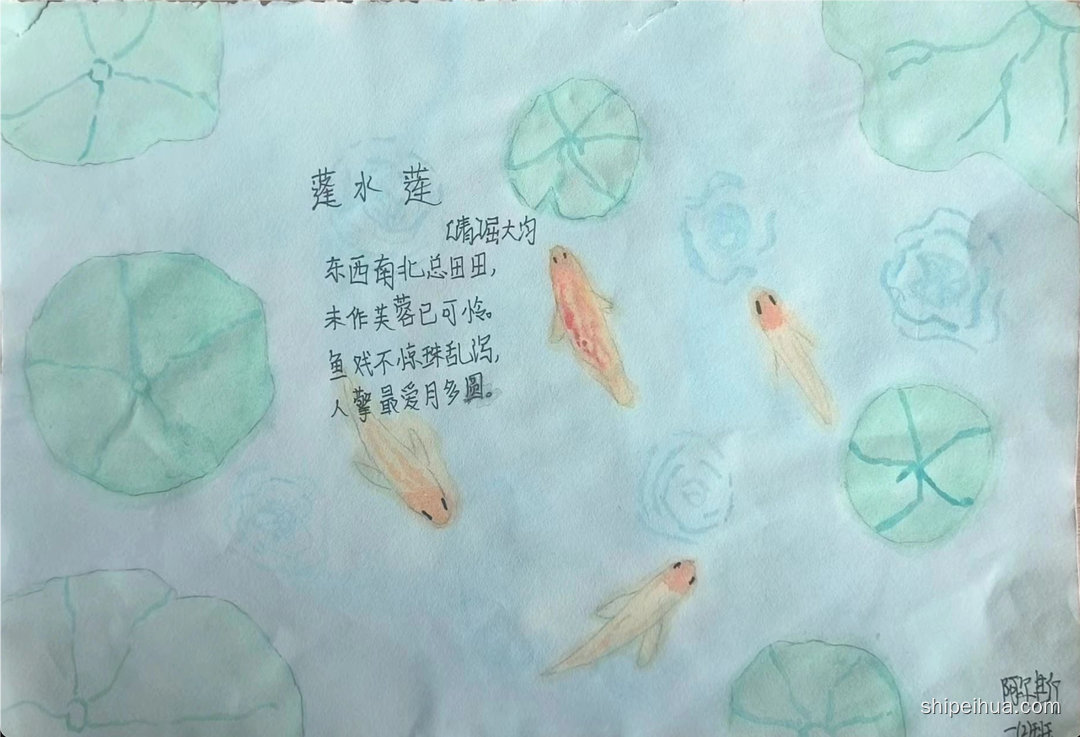 蓬水莲
[清]屈大均
东西南北总田田,
未作芙蓉已可怜。
鱼戏不惊珠乱泻,
人擎最爱月多圆。
shipeihua.com
一(2)班